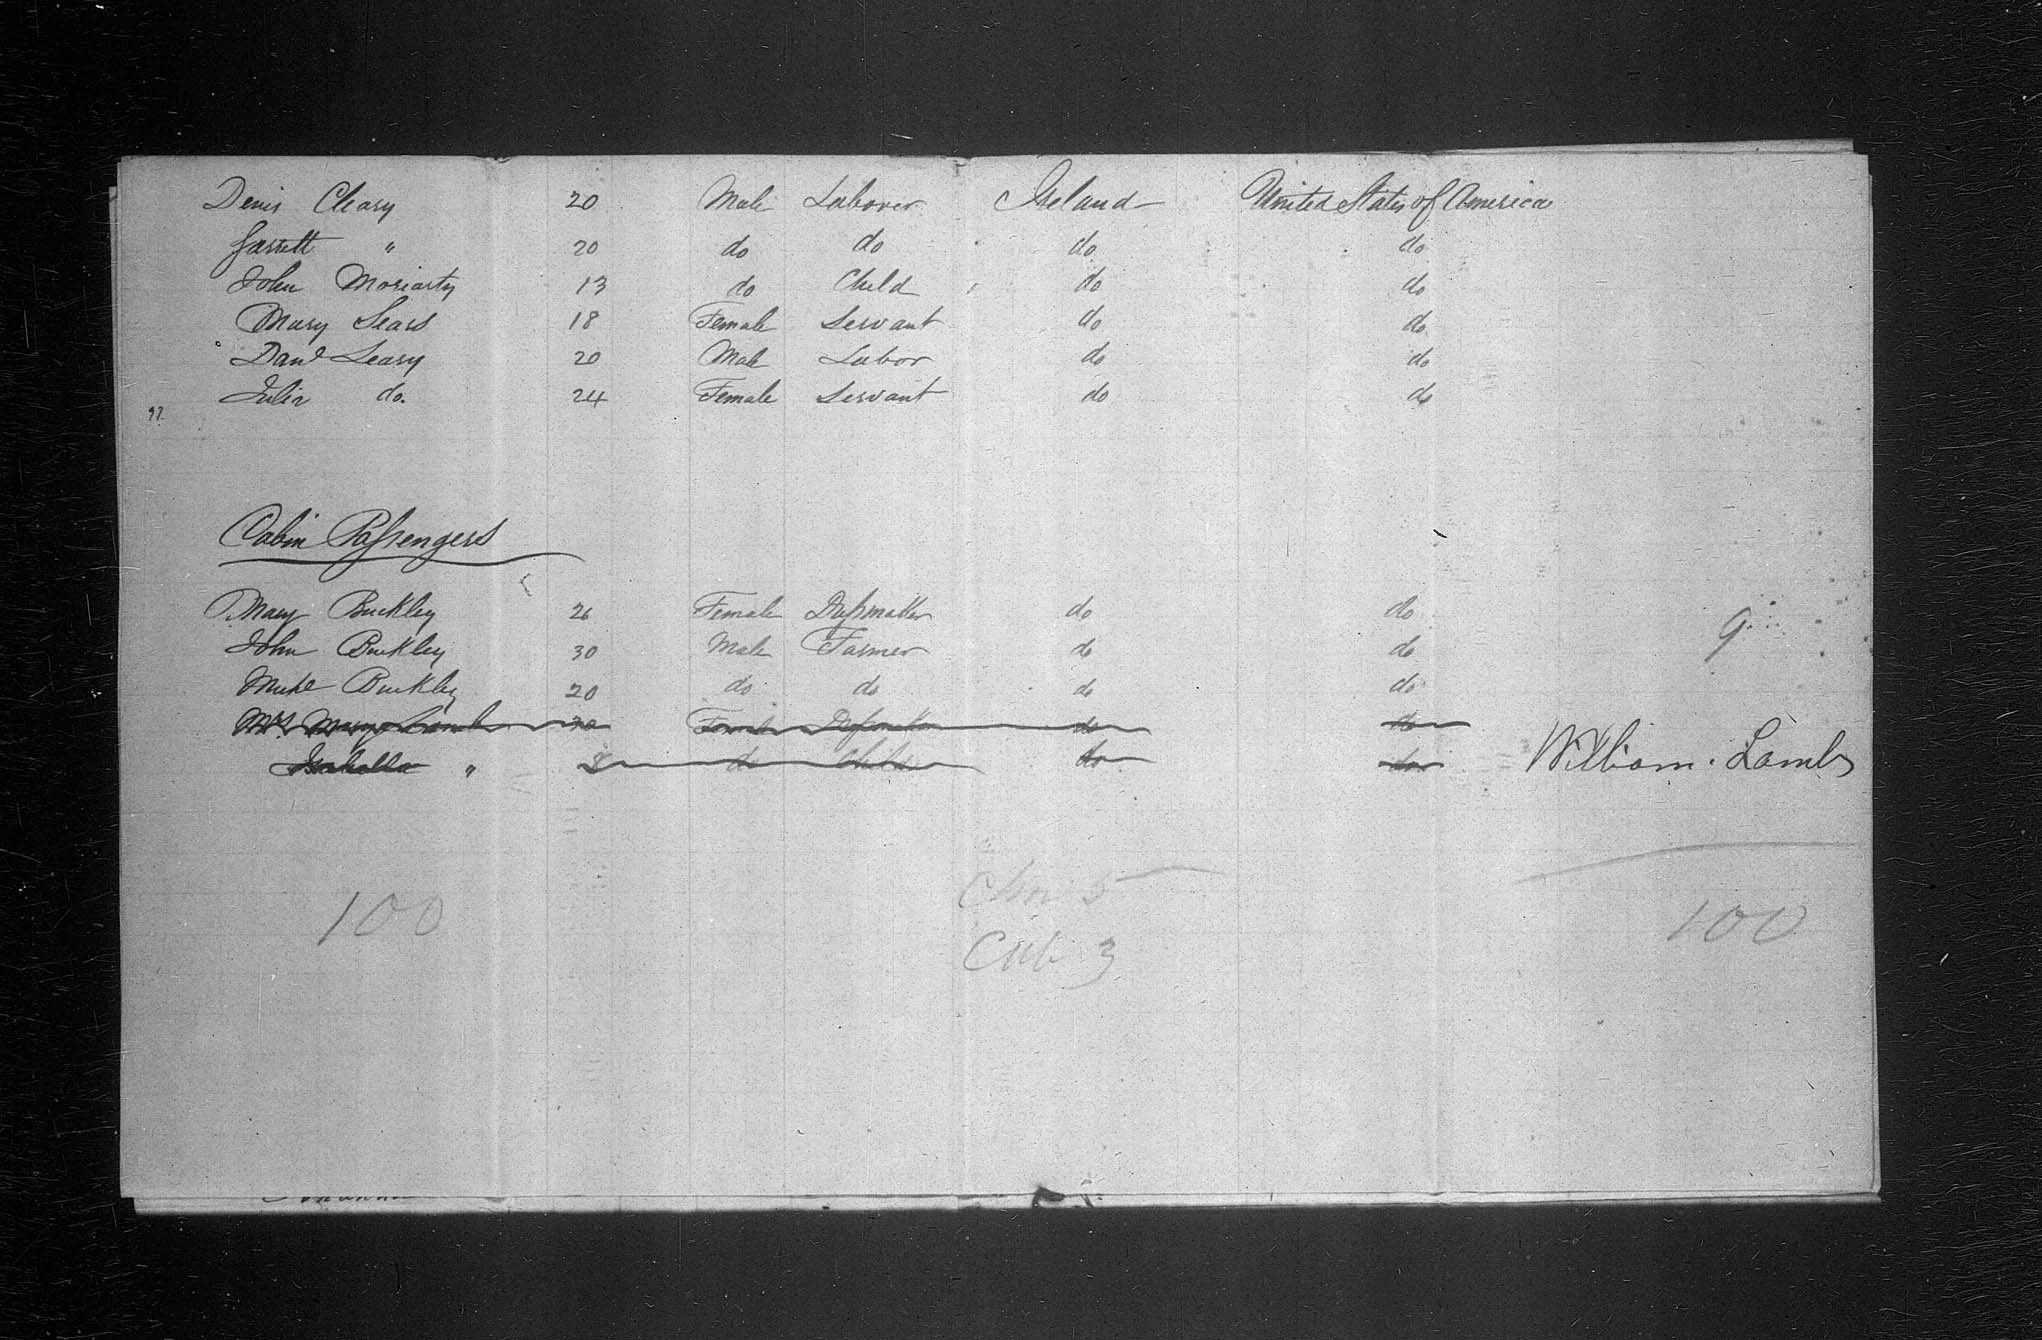 Denis Cleary 20 Male Laborer Ireland United States of America
Garrett " 20 do do do do
John Moriarty 13 do Child do do
Mary Sears 18 Female Servant do do
Danl Leary 20 Male Labor do do
Julia do. 24 Female Servant do do
97
Cabin Passengers
Mary Buckley 26 Female Dressmaker do do
John Buckley 30 Male Farmer do do
Michl Buckley 20 do do do do
Mrs Mary Lamb 30 Female Dressmaker do do
Isabella " 8 do Child do do William Lamb
100 100
Chn 5
Cab 3